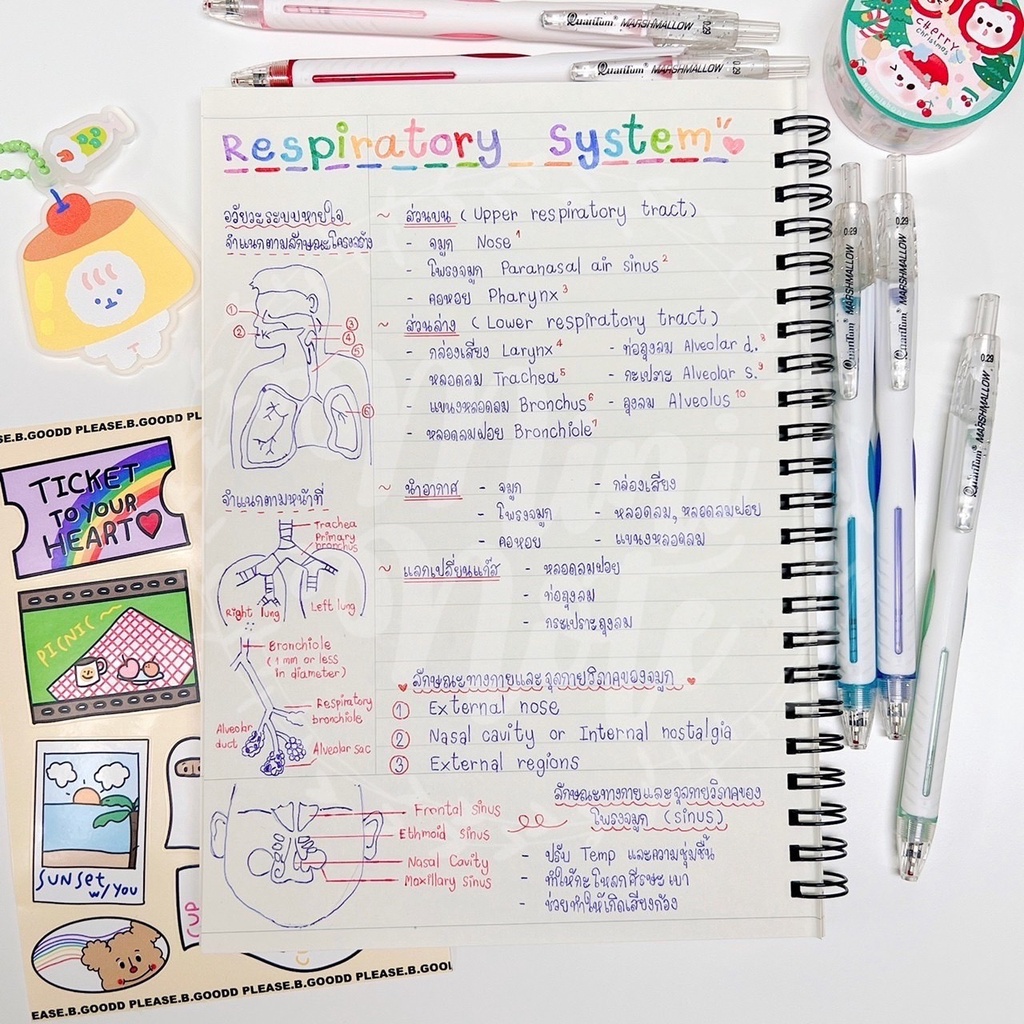 QuanTum® MARSHMALLOW 0.29
QuanTum® MARSHMALLOW 0.29
CHERRY
christmas
Respiratory System
อวัยวะระบบหายใจ
จำแนกตามลักษณะโครงสร้าง
1
2
3
4
5
6
~ ส่วนบน ( Upper respiratory tract)
- จมูก Nose 1
- โพรงจมูก Paranasal air sinus 2
- คอหอย Pharynx 3
~ ส่วนล่าง ( Lower respiratory tract)
- กล่องเสียง Larynx 4 - ท่อถุงลม Alveolar d. 8
- หลอดลม Trachea 5 - กะเปาะ Alveolar s. 9
- แขนงหลอดลม Bronchus 6 - ถุงลม Alveolus 10
- หลอดลมฝอย Bronchiole 7
จำแนกตามหน้าที่
Trachea
Primary
bronchus
Right lung
Left lung
Bronchiole
( 1 mm or less
in diameter)
Respiratory
bronchiole
Alveolar
duct
Alveolar sac
~ นำอากาศ - จมูก - กล่องเสียง
- โพรงจมูก - หลอดลม, หลอดลมฝอย
- คอหอย - แขนงหลอดลม
~ แลกเปลี่ยนแก๊ส - หลอดลมฝอย
- ท่อถุงลม
- กระเปราะถุงลม
ลักษณะทางกายและจุลกายวิภาคของจมูก
1 External nose
2 Nasal cavity or Internal nostalgia
3 External regions
Frontal sinus
Ethmoid sinus
Nasal Cavity
Maxillary sinus
ลักษณะทางกายและจุลกายวิภาคของ
โพรงจมูก (sinus)
- ปรับ Temp และความชุ่มชื้น
- ทำให้กะโหลกศีรษะเบา
- ช่วยทำให้เกิดเสียงก้อง
0.29 MARSHMALLOW QuanTum®
0.29 MARSHMALLOW QuanTum®
0.29 MARSHMALLOW QuanTum®
SE.B.GOODD PLEASE.B.GOODD P
TICKET
TO YOUR
HEART
PICNIC ~
SUNSET
W/ YOU
CUP
EASE.B.GOODD PLEASE.B.GOODD PLEASE.B.GOODD PLEASE.B.GOO